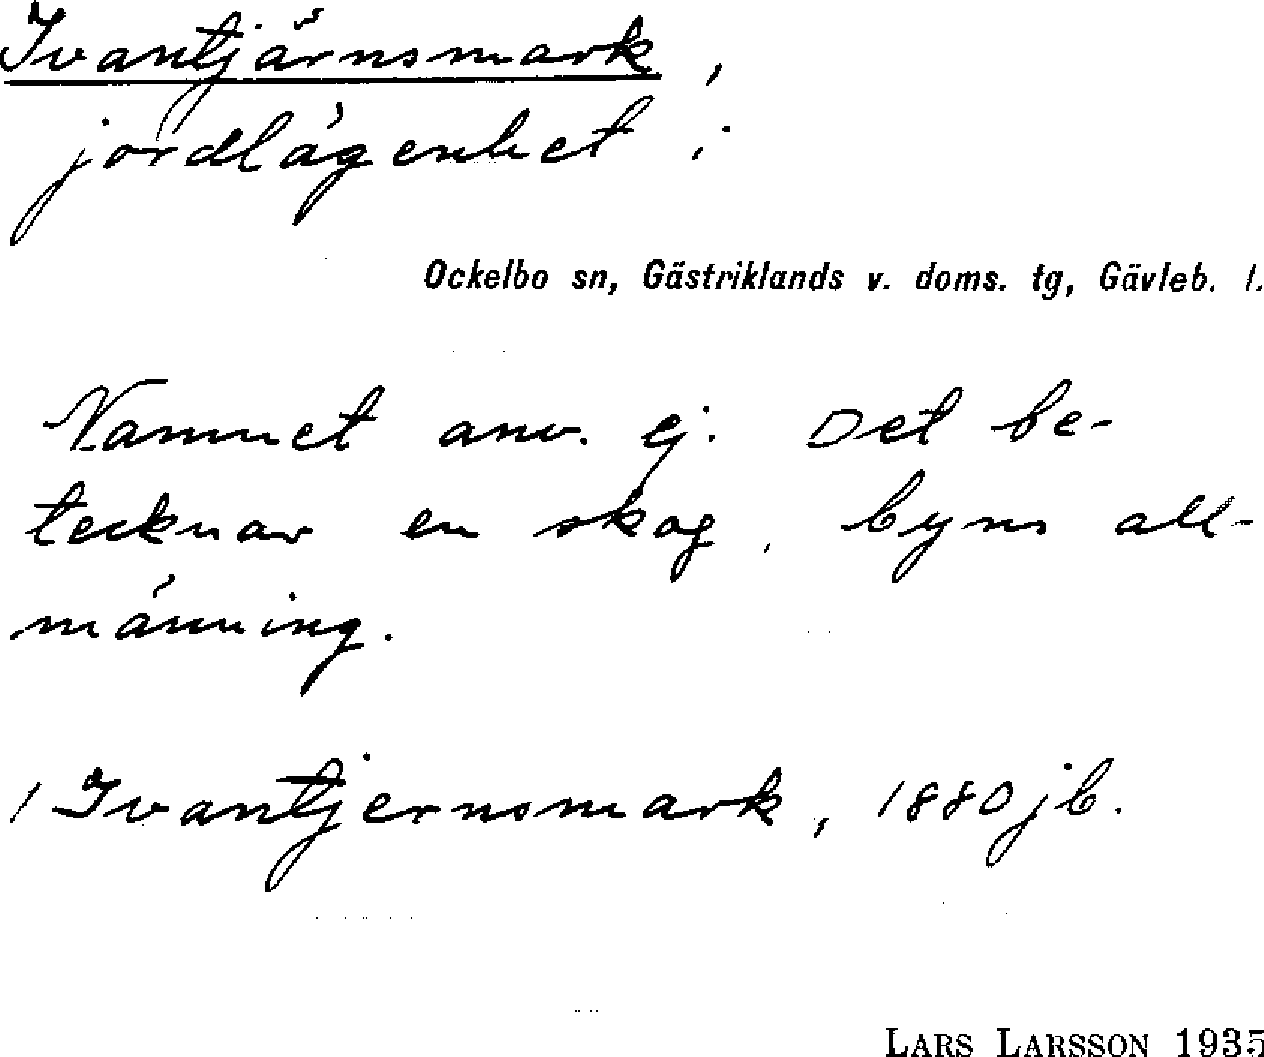 Ivantjärnsmark,
jordlägenhet i
Ockelbo sn, Gästriklands v. doms. tg, Gävleb. l.
Namnet anv. ej. Det be-
tecknar en skog, byns all-
männing.
/ Ivantjernsmark, 1880 jb.
LARS LARSSON 1935